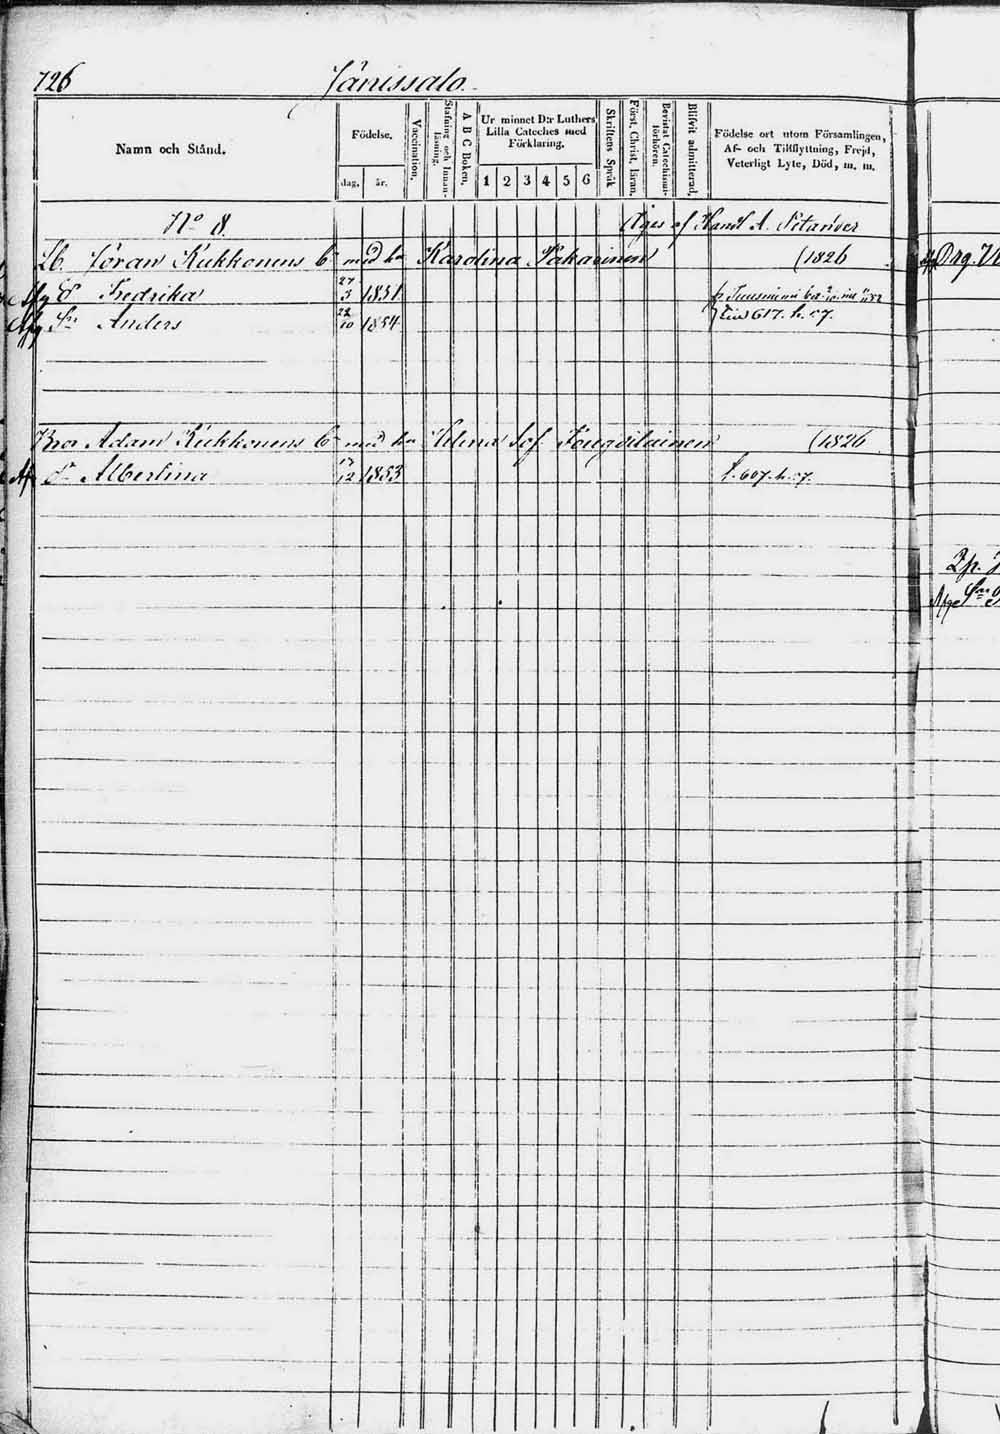 726 Jänissalo
Namn och Stånd.
Födelse.
dag. år.
Vaccination.
Stafning och Innan-läsning.
A B C Boken.
Ur minnet D:r Luthers
Lilla Cateches med
Förklaring.
1 2 3 4 5 6
Skriftens Språk
Först. Christ. läran.
Bevistat Catechismi-förhören.
Blifvit admitterad.
Födelse ort utom Församlingen,
Af- och Tillflyttning, Frejd,
Veterligt Lyte, Död, m. m.
No 8. Äges af Handl A.
Lb. Jöran Kukkonens med Karolina Pakarinen (1826
Fredrika 27/3 1851
Anders 22/10 1854 617. h. 57.
Bror Adam Kukkonens med Helena Sof. (1826
Albertina 12 1853 f. 607. h. 57.
Drg.